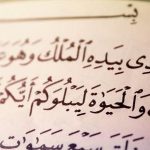 بِسْ
ذِى بِيَدِهِ ٱلْمُلْكُ وَهُوَ
وَٱلْحَيَوٰةَ لِيَبْلُوَكُمْ أَيُّكُمْ
خَلَقَ سَبْعَ سَمَٰوَٰتٍ